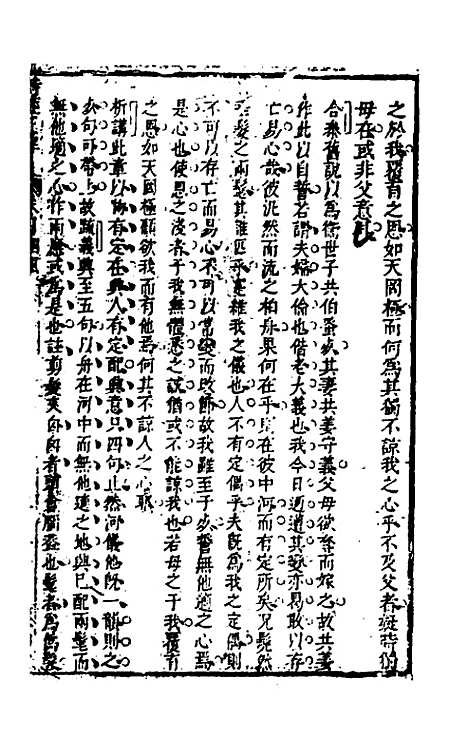 之於我覆育之恩如天罔極而何為其獨不諒我之心乎不及父者疑時但
母在或非父意耳
合參舊說以為衛世子共伯蚤死其妻共姜守義父母欲奪而嫁之故共姜
作此以自誓若謂夫婦大倫也偕老大義也我今日適遭其變亦曷敢以存
亡易心哉彼汎然而流之柏舟果何在乎則在彼中河而有定所矣况髧然
之髮之兩髦其誰匹乎實維我之儀也人不有定偶乎夫既為我之定偶則
不可以存亡而易心不可以常變而改節故我雖至于死誓無他適之心焉
是心也使恩之淺者于我無體悉之誼猶或不能諒我也若母之于我覆育
之恩如天罔極顧欲我而有他焉何其不諒人之心耶
析講此章以舟有定在興人有定配興意只四句止然河儀他既一韻則之
死句可帶上故疏義興至五句以舟在河中而無他適之地與已配兩髦而
無他適之心作兩應或為是也註剪髮夾囟囟者頭會腦葢也髦者為